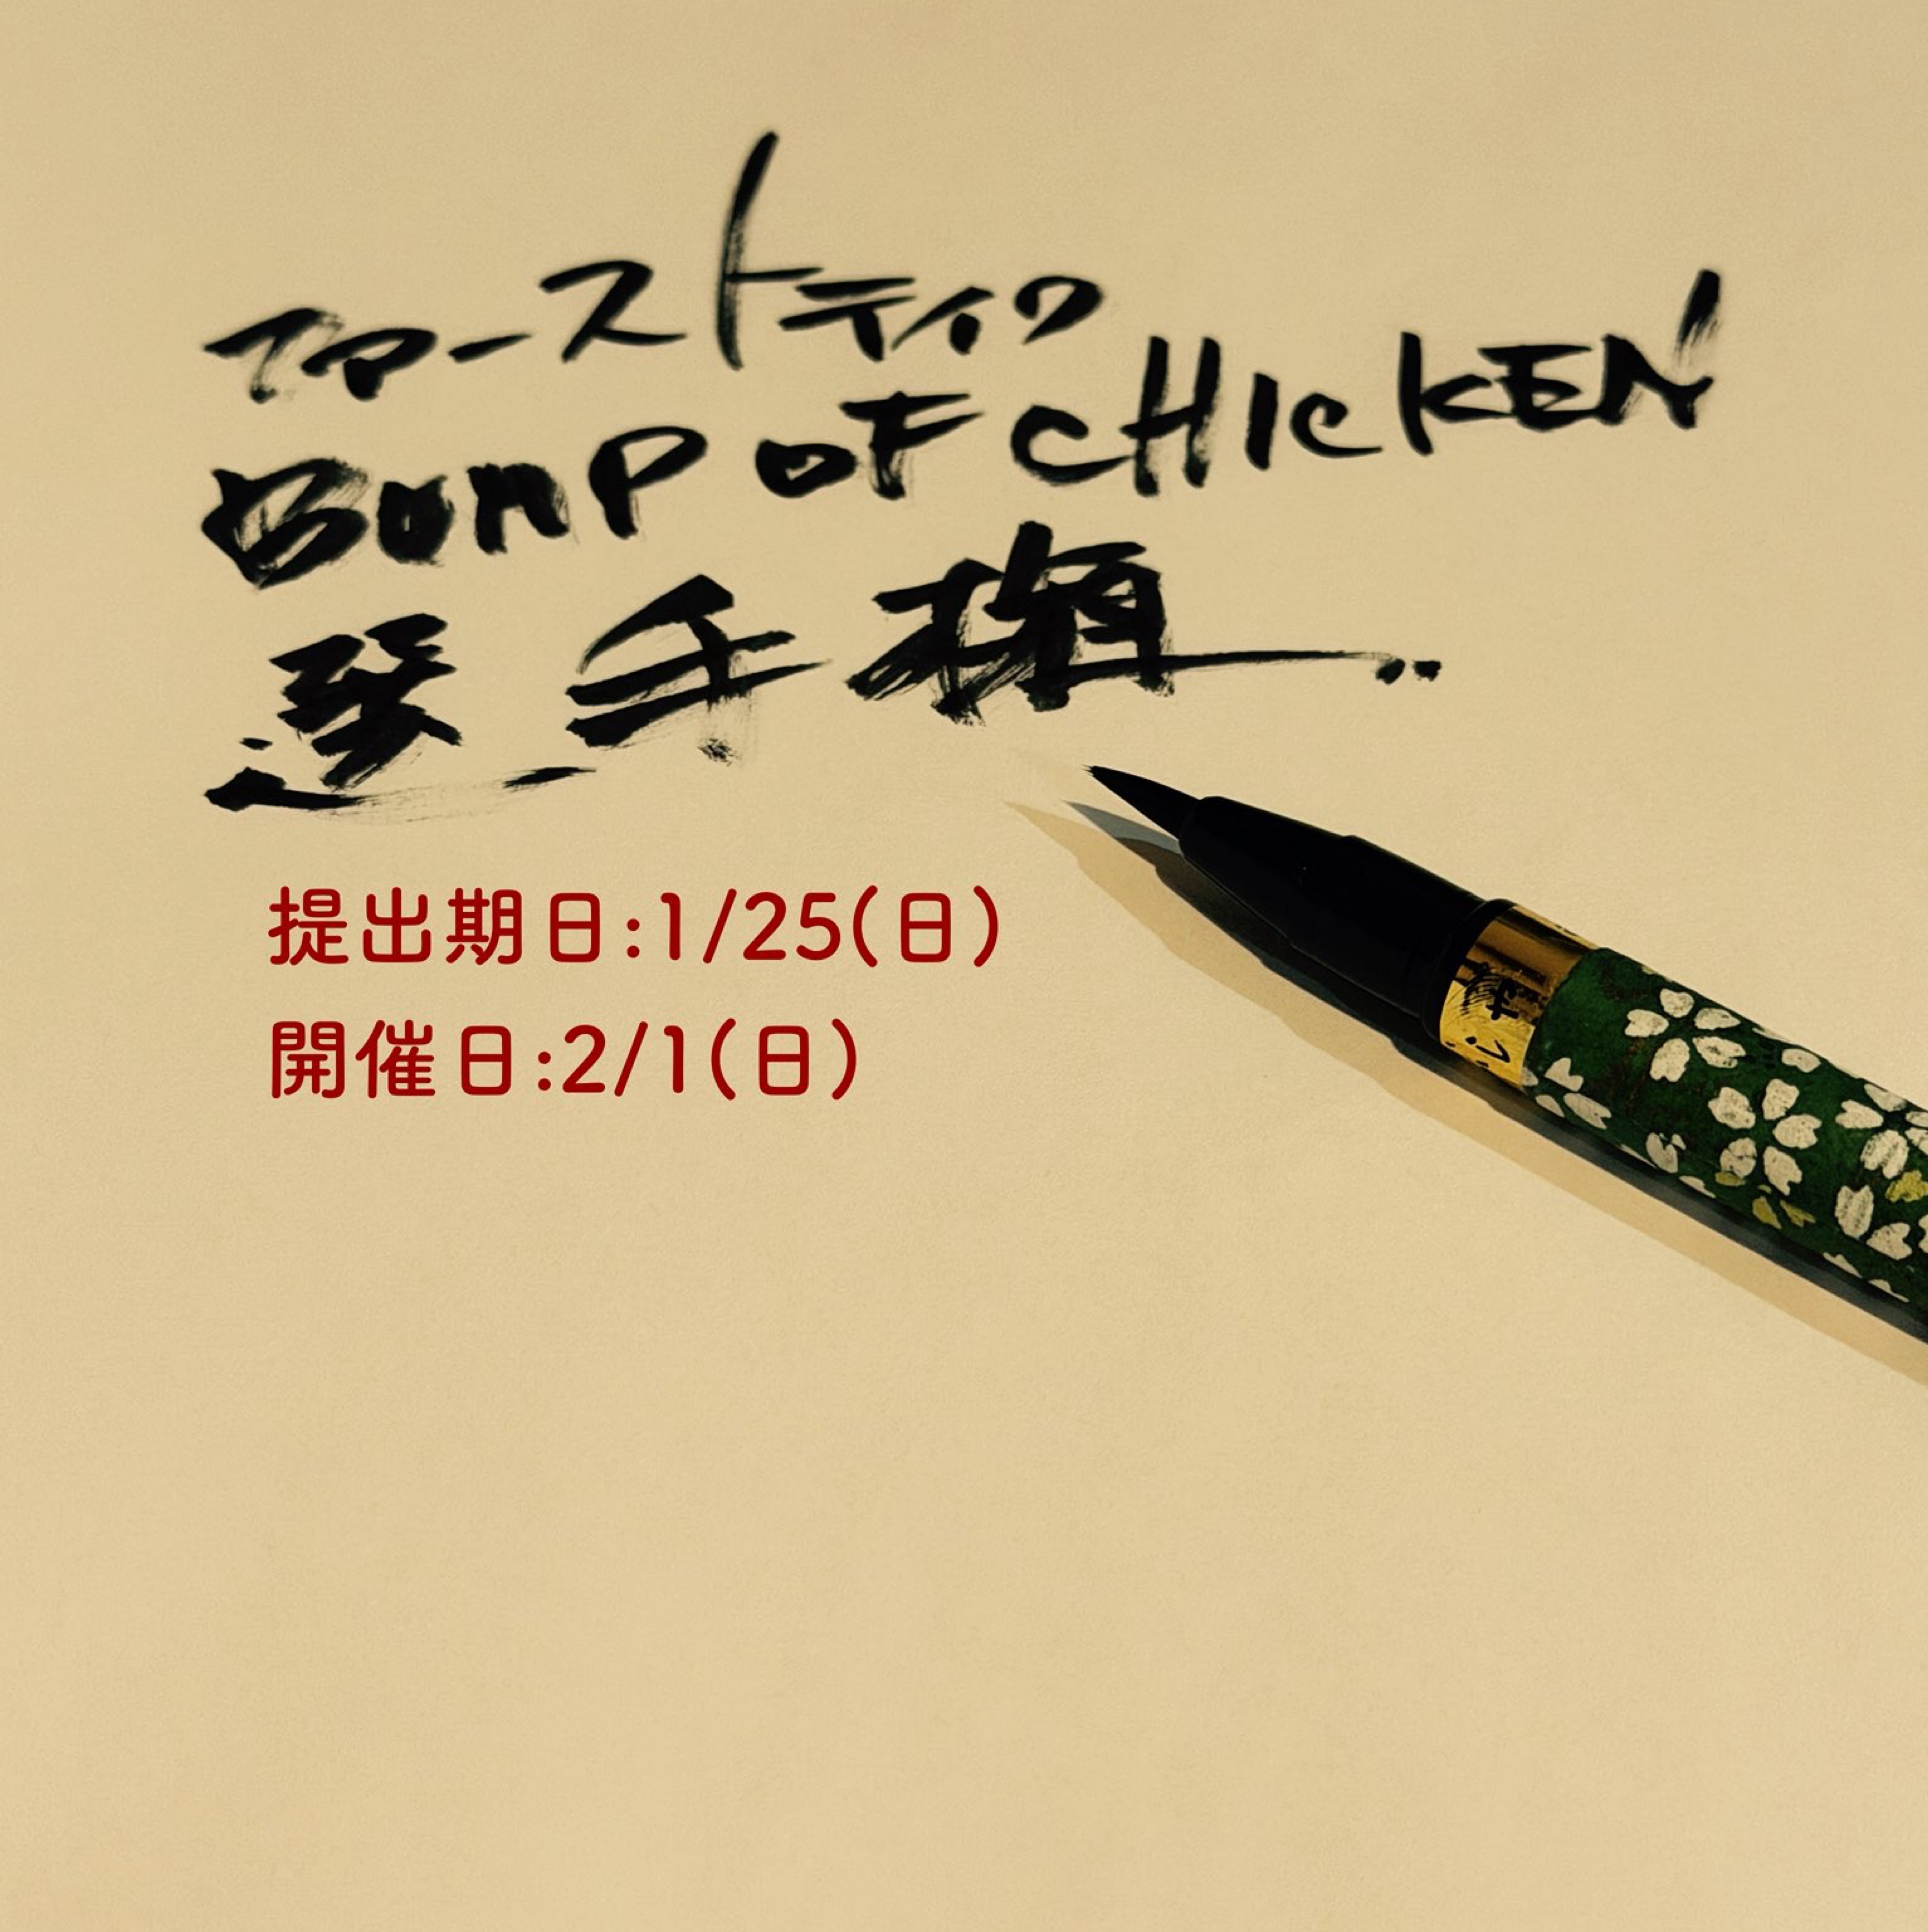 ファーストテイク
BUMP OF CHICKEN
選手権
提出期日:1/25(日)
開催日:2/1(日)